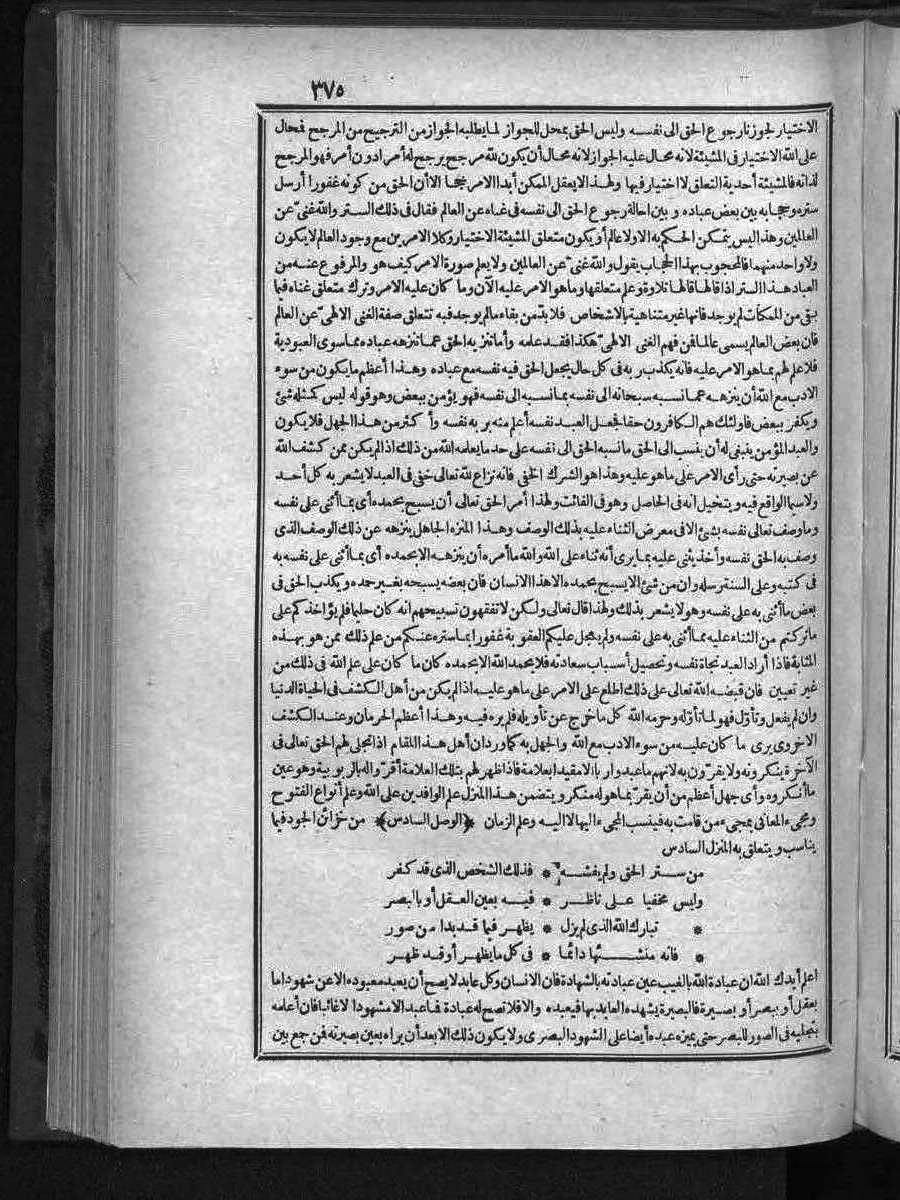 ٣٧٥
الاختيار لجوزنا رجوع الحق الى نفسه وليس الحق بمحل للجواز لما يطلبه الجواز من الترجيح من المرجح فمحال
على الله الاختيار فى المشيئة لانه محال عليه الجواز لانه محال أن يكون لله مرجح يرجح له أمرا دون أمر فهو المرجح
لذاته فالمشيئة أحدية التعلق لا اختيار فيها ولهذا لا يعقل الممكن أبدا الا مرجحا الا أن الحق من كونه غفورا أرسل
ستره وحجابه بين بعض عباده وبين احالة رجوع الحق الى نفسه فى غناه عن العالم فقال فى ذلك الستر والله غنىّ عن
العالمين وهذا ليس يتمكن الحكم به الا ولا عالم أو يكون متعلق المشيئة الاختيار وكلا الامرين مع وجود العالم لا يكون
ولا واحد منهما فالمحجوب بهذا الحجاب يقول والله غنىّ عن العالمين ولا يعلم صورة الامر كيف هو والمرفوع عنه من
العباد هذا الستر اذا قالها قالها تلاوة وعلم متعلقها وما هو الامر عليه الآن وما كان عليه الامر وترك متعلق غناه فيما
بقى من الممكنات لم يوجد فانها غير متناهية بالاشخاص فلا بدّ من بقاء مالم يوجد فبه تتعلق صفة الغنى الالهىّ عن العالم
فان بعض العالم يسمى عالما فمن فهم الغنى الالهىّ هكذا فقد علمه وأما تنزيه الحق عما تنزهه عباده مما سوى العبودية
فلا علم لهم بما هو الامر عليه فانه يكذب ربه فى كل حال يجعل الحق فيه نفسه مع عباده وهذا أعظم ما يكون من سوء
الادب مع الله أن ينزهه عما نسبه سبحانه الى نفسه بما نسبه الى نفسه فهو يؤمن ببعض وهو قوله ليس كمثله شئ
ويكفر ببعض فاولئك هم الكافرون حقا فجعل العبد نفسه أعلم منه بربه نفسه وأكثر من هذا الجهل فلا يكون
والعبد المؤمن ينبغى له أن ينسب الى الحق ما نسبه الحق الى نفسه على حد ما يعلمه الله من ذلك اذ لم يكن ممن كشف الله
عن بصيرته حتى رأى الامر على ما هو عليه وهذا هو الشرك الخفىّ فانه نزاع لله تعالى خفى فى العبد لا يشعر به كل أحد
ولا سيما الواقع فيه ويتخيل انه فى الحاصل وهو فى الفائت ولهذا أمر الحق تعالى أن يسبح بحمده أى بما أثنى على نفسه
وما وصف تعالى نفسه بشئ الا فى معرض الثناء عليه بذلك الوصف وهذا المنزه الجاهل ينزهه عن ذلك الوصف الذى
وصف به الحق نفسه وأخذ يثنى عليه بما يرى أنه ثناء على الله والله ما أمره أن ينزهه الا بحمده أى بما أثنى على نفسه به
فى كتبه وعلى السنة رسله وان من شئ الا يسبح بحمده الا هذا الانسان فان بعضه يسبحه بغير حمده ويكذب الحق فى
بعض ما أثنى به على نفسه وهو لا يشعر بذلك ولهذا قال تعالى ولكن لا تفقهون تسبيحهم انه كان حليما فلم يؤاخذكم على
ما تركتم من الثناء عليه مما أثنى به على نفسه ولم يعجل عليكم العقوبة غفورا بما ستره عنكم من علم ذلك ممن هو بهذه
المثابة فاذا أراد العبد نجاة نفسه وتحصيل أسباب سعادته فلا يحمد الله الا بحمده كان ما كان على علم الله فى ذلك من
غير تعيين فان قبضه الله تعالى على ذلك اطلع على الامر على ما هو عليه اذ لم يكن من أهل الكشف فى الحياة الدنيا
وان لم يفعل وتأوّل فهو لما تأوّله وحرمه الله كل ما خرج عن تأويله فلم يره فيه وهذا أعظم الحرمان وعند الكشف
الاخروى يرى ما كان عليه من سوء الادب مع الله والجهل به كما ورد ان أهل هذا المقام اذا تجلى لهم الحق تعالى فى
الآخرة ينكرونه ولا يقرّون به لانهم ما عبدوا ربا الا مقيدا بعلامة فاذا ظهر لهم بتلك العلامة أقرّوا له بالربوبية وهو عين
ما أنكروه وأى جهل أعظم من أن يقرّ بما هو له منكر ويتضمن هذا المنزل علم الوافدين على الله وعلم أنواع الفتوح
ومجىء المعانى بمجىء من قامت به فينسب المجىء اليها لا اليه وعلم الزمان ﴿الوصل السادس﴾ من خزائن الجود فيما
يناسب ويتعلق به المنزل السادس
من ستر الحق ولم يفشه * فذلك الشخص الذى قد كفر
وليس مخفيا على ناظر * فيه بعين العقل أو بالبصر
* تبارك الله الذى لم يزل * يظهر فيما قد بدا من صور
* فانه منشئها دائما * فى كل ما يظهر أو قد ظهر
اعلم أيدك الله ان عبادة الله بالغيب عين عبادته بالشهادة فان الانسان وكل عابد لا يصح أن يعبد معبوده الا عن شهود اما
بعقل أو ببصر أو بصيرة فالبصيرة يشهده العابد بها فيعبده والا فلا تصح له عبادة فما عبد الا مشهودا لا غائبا فان أعلمه
بتجليه فى الصور للبصر حتى يميزه عبده أيضا على الشهود البصرى ولا يكون ذلك الا بعد أن يراه بعين بصيرته فمن جمع بين